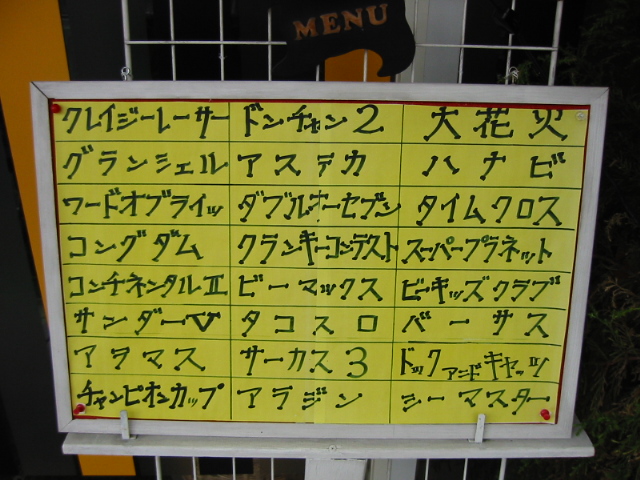 MENU
クレイジーレーサー ドンチャン2 大花火
グランシェル アステカ ハナビ
ワードオブライツ ダブルオーセブン タイムクロス
コングダム クランキーコンテスト スーパープラネット
コンチネンタルII ビーマックス ビーキッズクラブ
サンダーV タコスロ バーサス
アヲマス サーカス3 ドックアンドキャッツ
チャンピオンカップ アラジン シーマスター